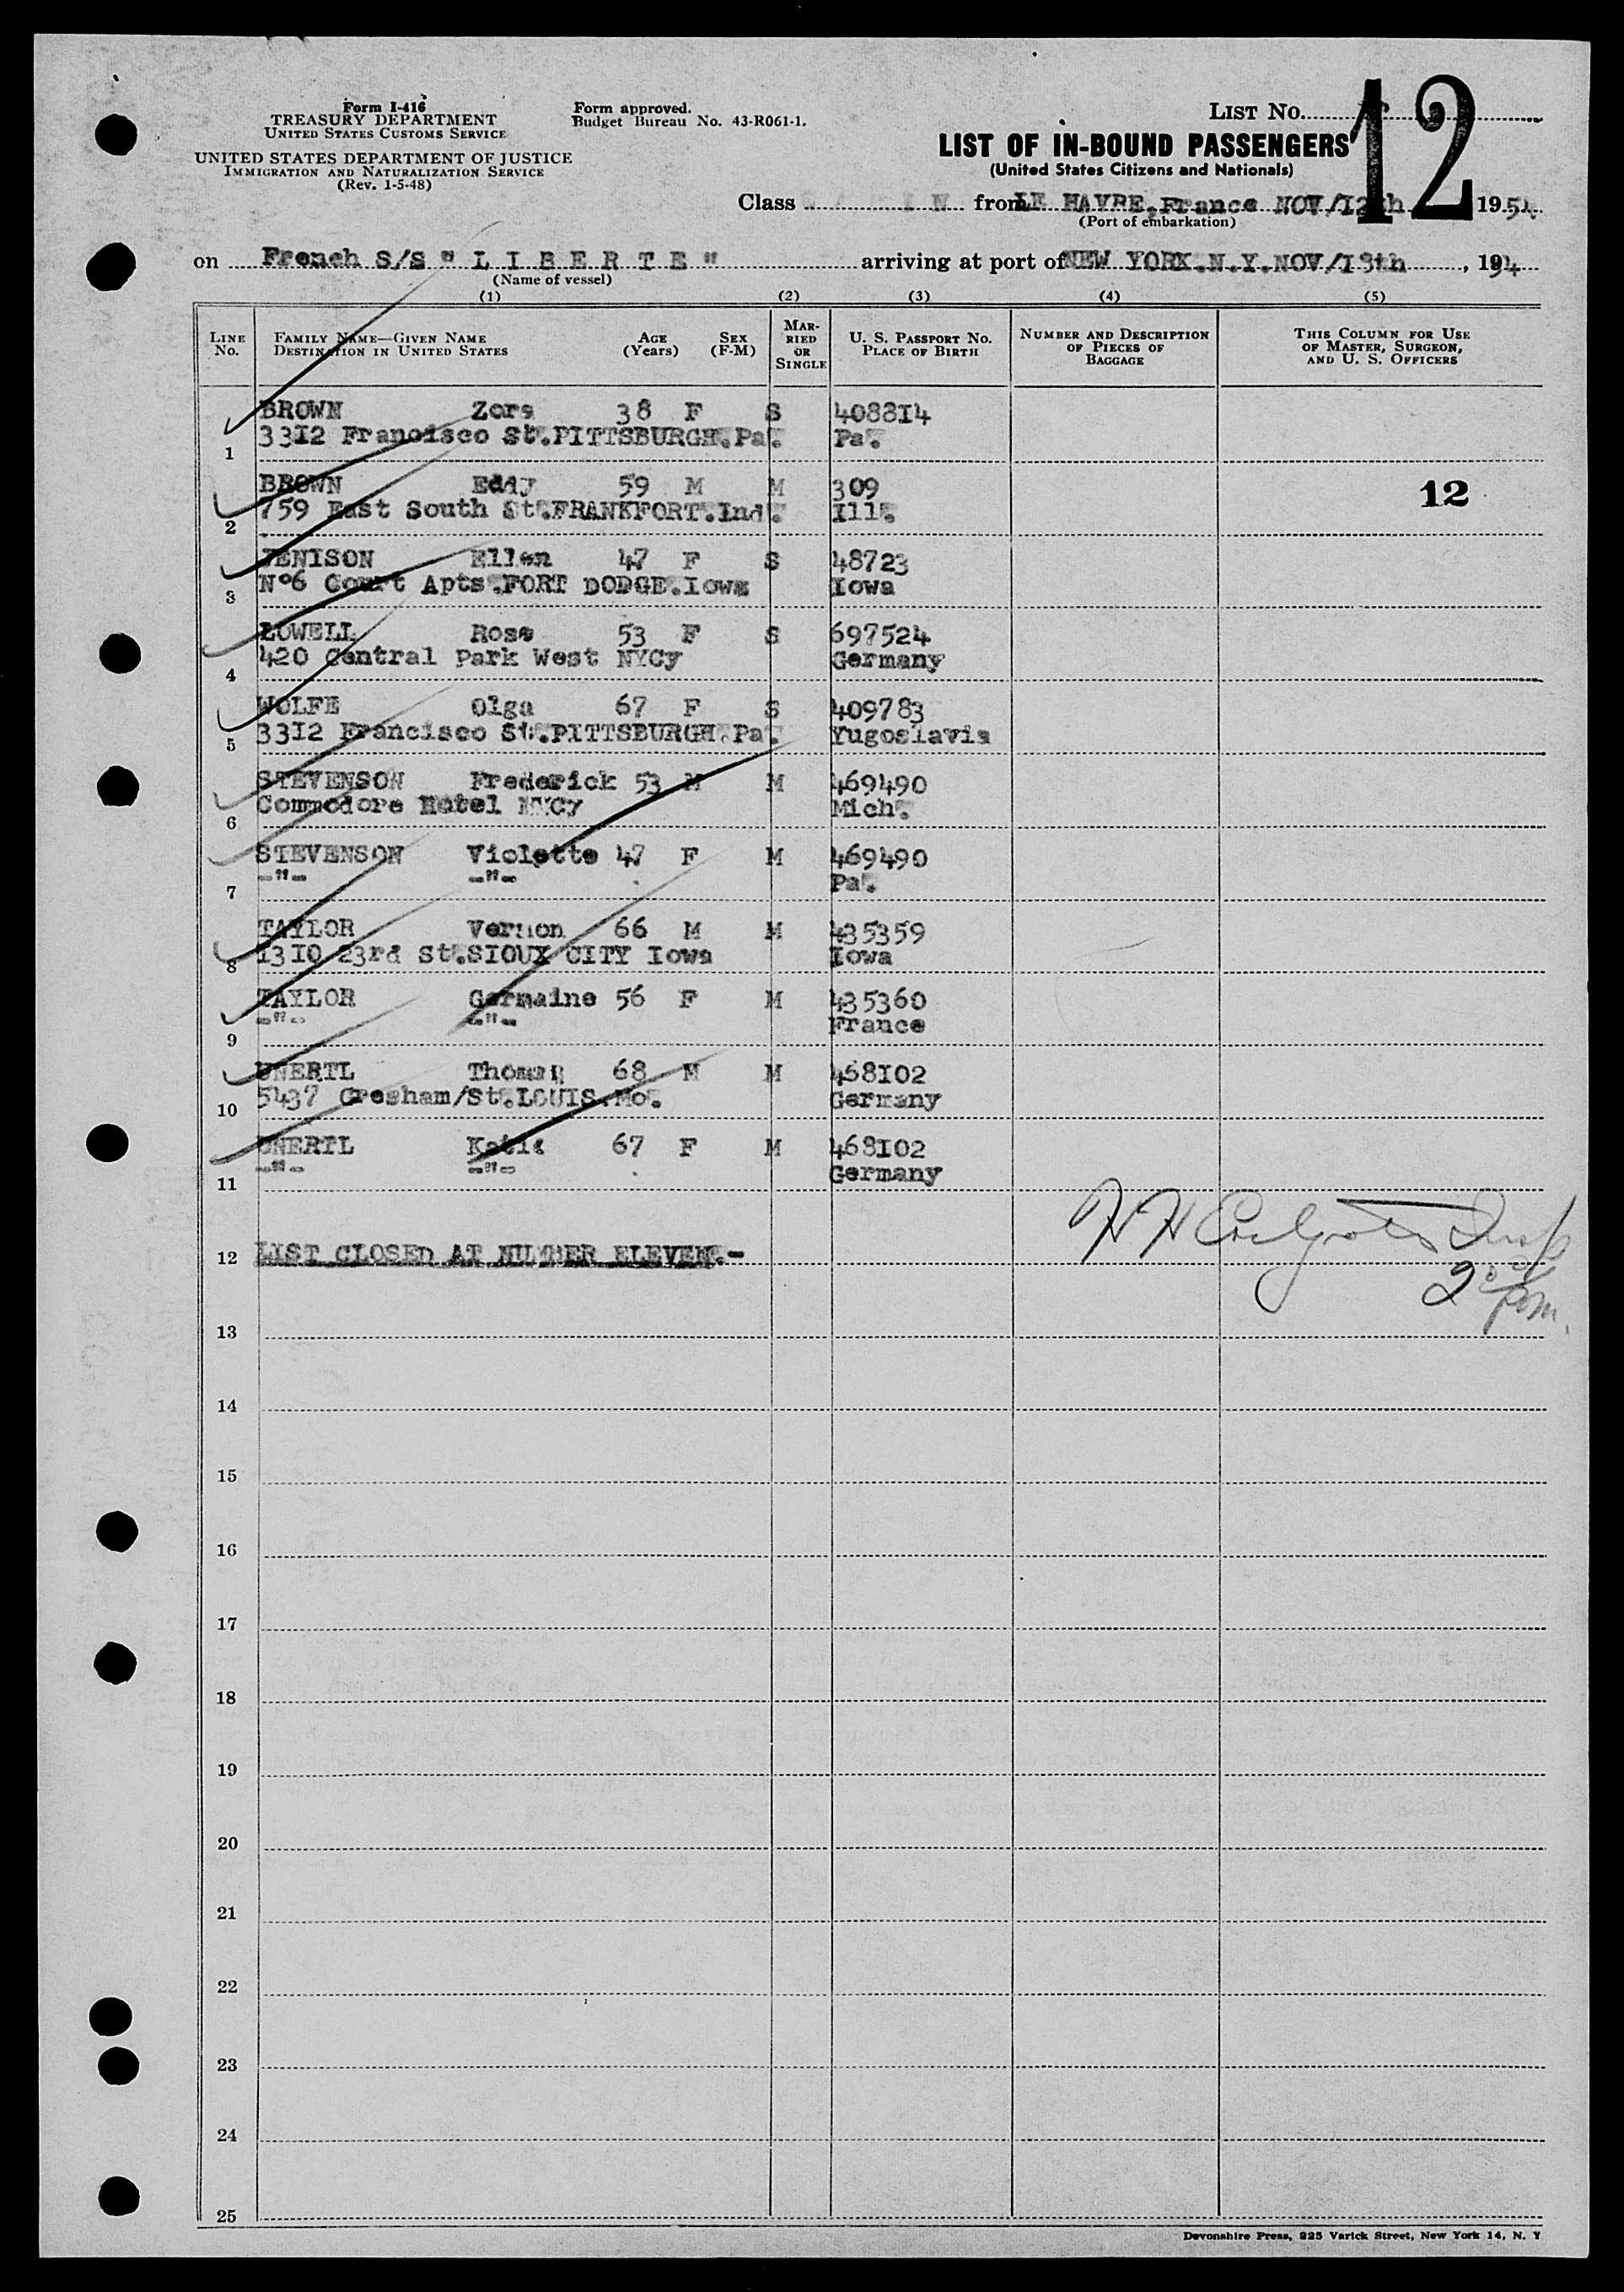 Form I-416
TREASURY DEPARTMENT
UNITED STATES CUSTOMS SERVICE
UNITED STATES DEPARTMENT OF JUSTICE
IMMIGRATION AND NATURALIZATION SERVICE
(Rev. 1-5-48)
Form approved.
Budget Bureau No. 43-R061-1.
LIST No. 12
LIST OF IN-BOUND PASSENGERS
(United States Citizens and Nationals)
Class from LE HAVRE.France NOV/12th 1954
(Port of embarkation)
on French S/S " L I B E R T E " arriving at port of NEW YORK.N.Y.NOV/18th, 1954
(Name of vessel)
(1) (2) (3) (4) (5)
LINE No. FAMILY NAME—GIVEN NAME DESTINATION IN UNITED STATES AGE (Years) SEX (F-M) MARRIED OR SINGLE U. S. PASSPORT No. PLACE OF BIRTH NUMBER AND DESCRIPTION OF PIECES OF BAGGAGE THIS COLUMN FOR USE OF MASTER, SURGEON, AND U. S. OFFICERS
BROWN Zora 38 F S 408814
1 3312 Francisco St.PITTSBURGH.Pa. Pa.
BROWN Eddy 59 M M 309 12
2 759 East South St.FRANKFORT.Ind. Ill.
JENISON Ellen 47 F S 48723
3 N°6 Court Apts.FORT DODGE.Iowa Iowa
LOWELL Rose 53 F S 697524
4 420 Central Park West NYCy Germany
WOLFE Olga 67 F S 409783
5 3312 Francisco St.PITTSBURGH.Pa. Yugoslavia
STEVENSON Frederick 53 M M 469490
6 Commodore Hotel NYCy Mich.
STEVENSON Violette 47 F M 469490
7 -"- -"- Pa.
TAYLOR Vernon 66 M M 435359
8 1310 23rd St.SIOUX CITY Iowa Iowa
TAYLOR Germaine 56 F M 435360
9 -"- -"- France
UNERTL Thomas 68 M M 468102
10 5437 Gresham/St.LOUIS.Mo. Germany
UNERTL Katie 67 F M 468102
11 -"- -"- Germany
12 LIST CLOSED AT NUMBER ELEVEN.-
13
14
15
16
17
18
19
20
21
22
23
24
25
Devonshire Press, 225 Varick Street, New York 14, N. Y